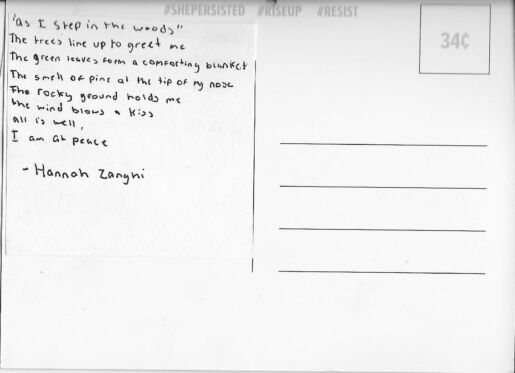 #SHEPERSISTED #RISEUP #RESIST
34¢
"as I step in the woods"
The trees line up to greet me
The green leaves form a comforting blanket
The smell of pine at the tip of my nose
The rocky ground holds me
the wind blows a kiss
all is well,
I am at peace
- Hannah Zanghi